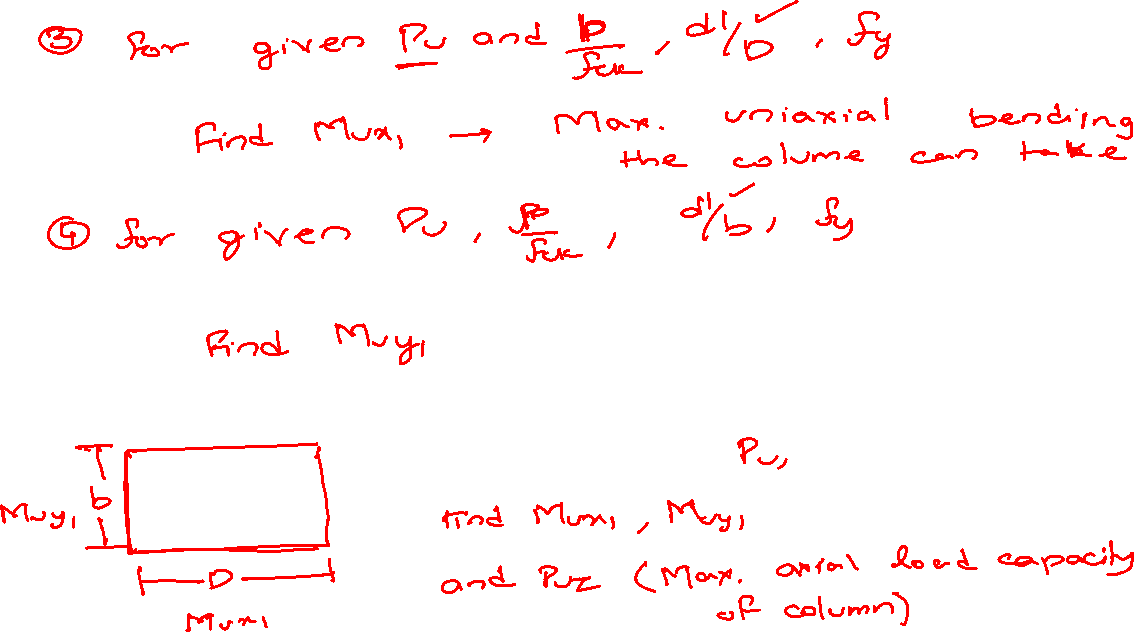 ③ for given Pu and p/fck, d'/D, fy
find Mux1 → Max. uniaxial bending
the colume can take
④ for given Pu, p/fck, d'/b, fy
find Muy1
Pu,
Muy1 b
find Mux1, Muy1
D
and Puz (Max. axial load capacity
of column)
Mux1